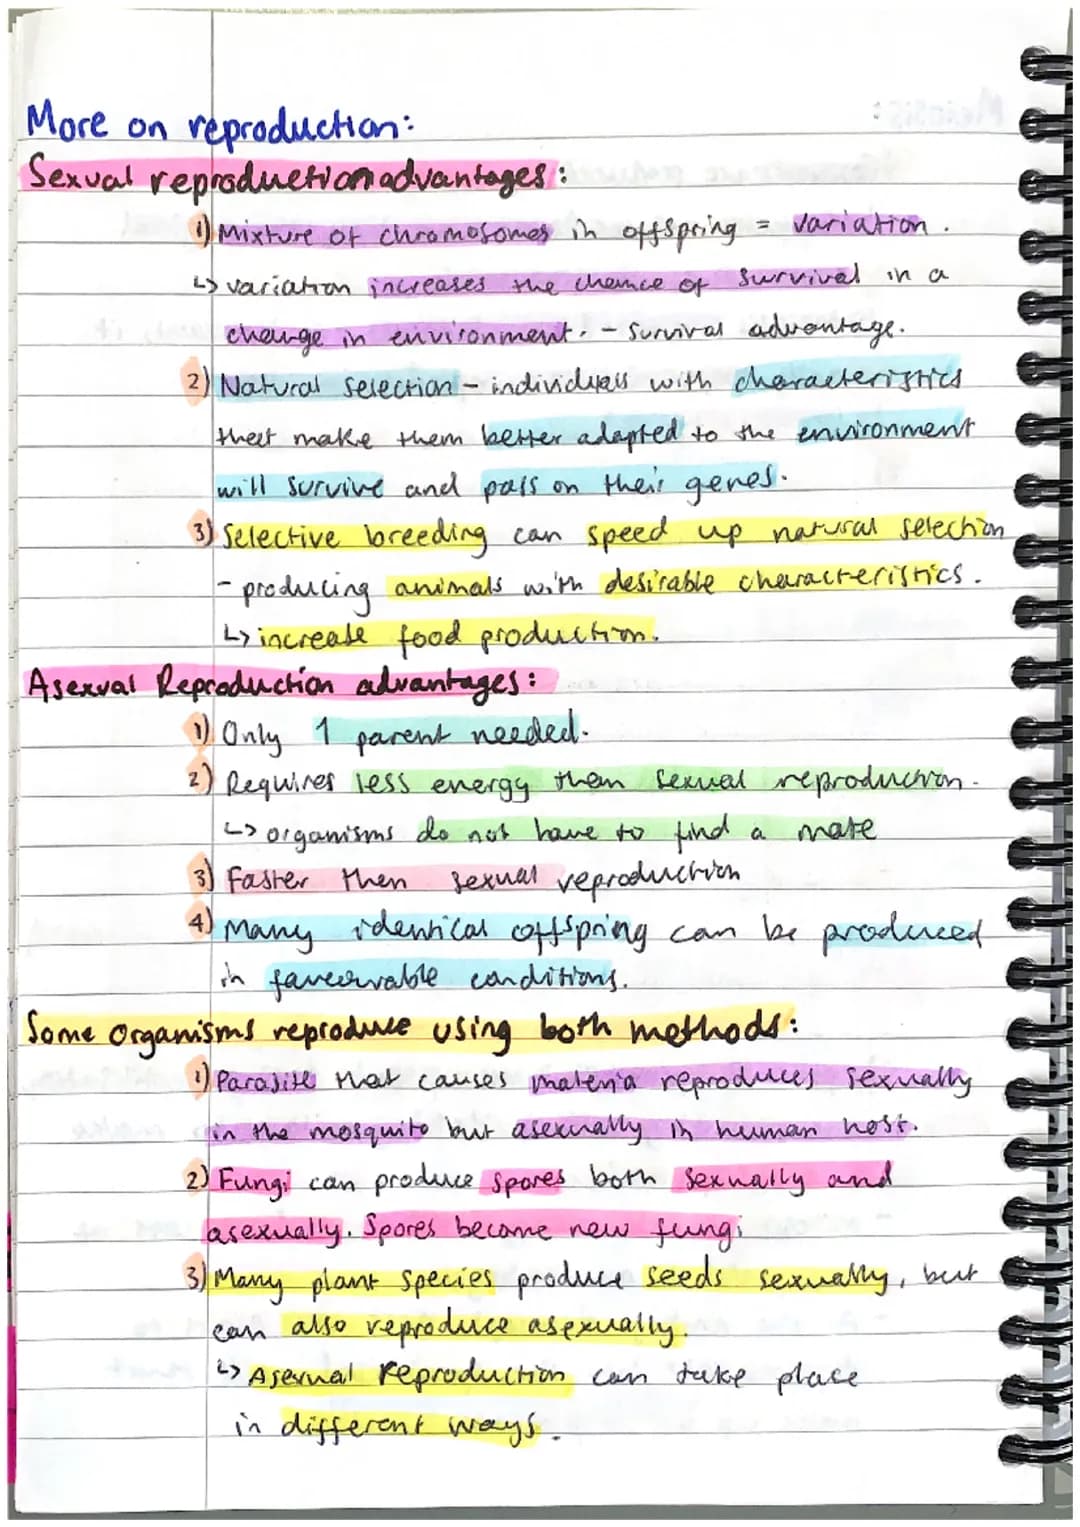 More on reproduction:
Sexual reproduction advantages:
1) Mixture of chromosomes in offspring = variation.
↳ variation increases the chance of survival in a
change in environment. - survival advantage.
2) Natural selection - individuals with characteristics
that make them better adapted to the environment
will survive and pass on their genes.
3) Selective breeding can speed up natural selection
- producing animals with desirable characteristics.
↳ increase food production.
Asexual Reproduction advantages:
1) Only 1 parent needed.
2) Requires less energy then sexual reproduction.
↳ organisms do not have to find a mate
3) Faster then sexual reproduction
4) Many identical offspring can be produced
in favourable conditions.
Some organisms reproduce using both methods:
1) Parasite that causes malaria reproduces sexually
in the mosquito but asexually in human host.
2) Fungi can produce spores both sexually and
asexually. Spores become new fungi
3) Many plant species produce seeds sexually, but
can also reproduce asexually.
↳ Asexual reproduction can take place
in different ways.